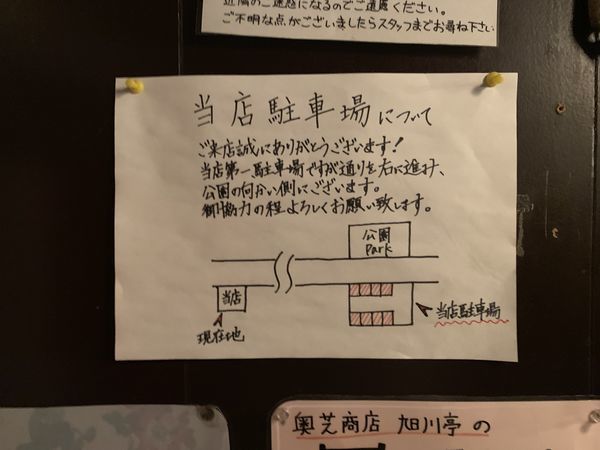 近隣のご迷惑になるのでご遠慮ください。
ご不明な点がございましたらスタッフまでお尋ね下さい
当店駐車場について
ご来店誠にありがとうございます!
当店第一駐車場ですが通りを右に進み、
公園の向かい側にございます。
御協力の程よろしくお願い致します。
公園
Park
当店
現在地
当店駐車場
奥芝商店 旭川亭の